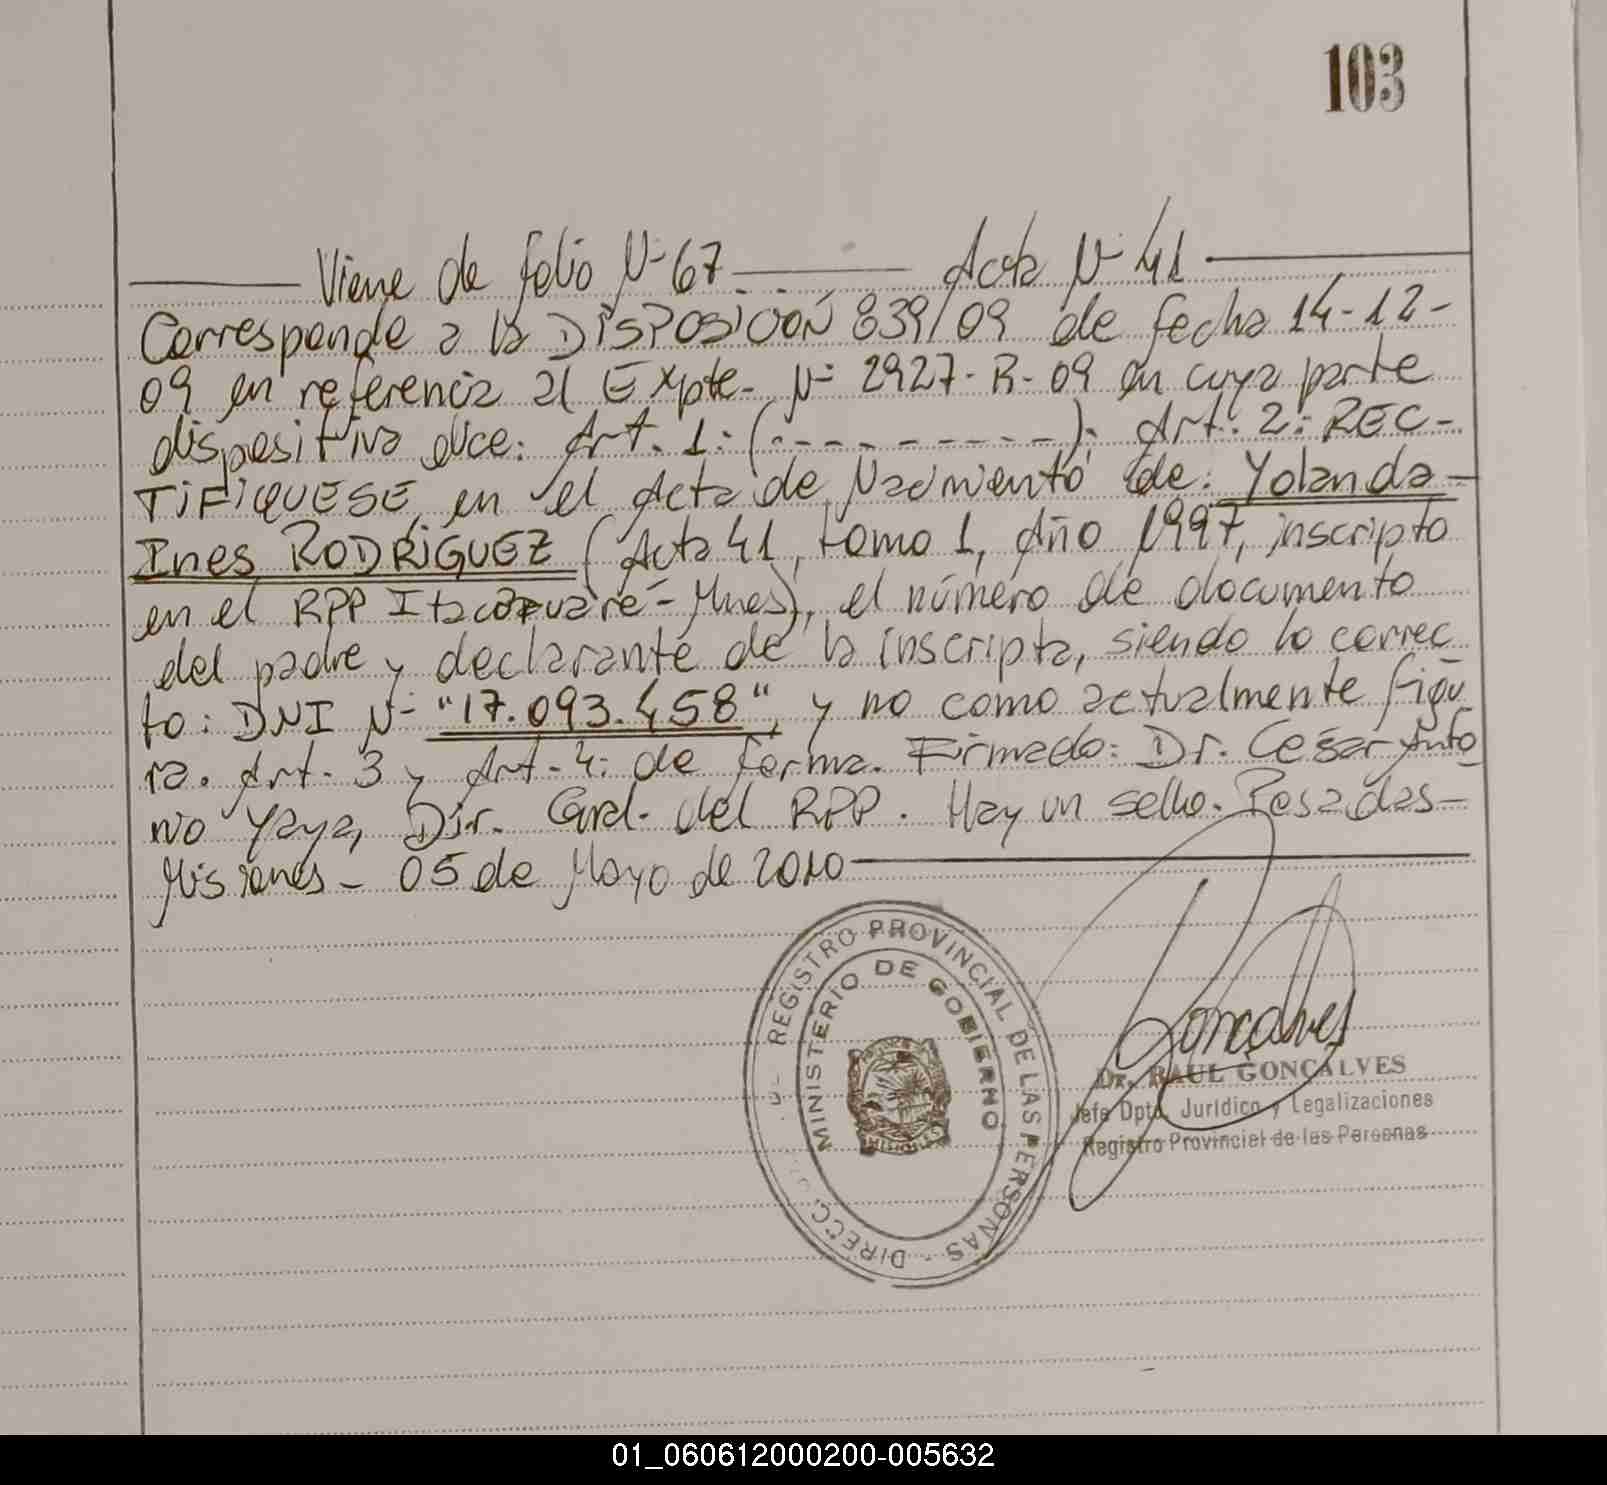 103
Viene de folio Nº 67 Acta Nº 41
Corresponde a la DISPOSICIÓN 839/09 de fecha 14-12-
09 en referencia al Expte. Nº 2927-R-09 en cuya parte
dispositiva dice: Art. 1: (---------). Art. 2: REC-
TIFIQUESE, en el Acta de Nacimiento de: Yolanda
Ines RODRIGUEZ (Acta 41, tomo 1, Año 1997, inscripto
en el RPP Itacaruaré - Mnes), el número de documento
del padre y declarante de la inscripta, siendo lo correc
to: DNI Nº "17.093.458", y no como actualmente figu
ra. Art. 3 y Art. 4: de forma. Firmado: Dr. Cesar Anto
nio Yaya, Dir. Gral. del RPP. Hay un sello. Posadas-
Misiones - 05 de Mayo de 2010
REGISTRO PROVINCIAL DE LAS PERSONAS - DIRECC.
MINISTERIO DE GOBIERNO
Goncalves
Dr. RAUL GONÇALVES
Jefe Dpto. Jurídico y Legalizaciones
Registro Provincial de las Personas
01_060612000200-005632